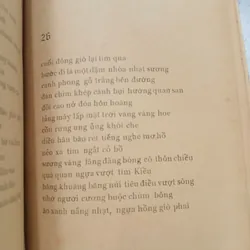 26
cuối đông gió lại tìm qua
bước đi là một dặm nhòa nhạt vương
cành phong gỗ trắng bên đường
đàn chim khép cánh hại hương quan san
đồi cao nở đón hôn hoàng
tầng mây lấp mặt trời vàng vàng hoe
cần rưng ưng ửng khói che
diều hâu bàu rét tiếng nghe mơ hồ
nếu xa tim ngất cổ bồ
vương vàng lãng đãng bóng cô thôn chiều
quả quan ngựa vượt tìm Kiều
bóng khoảng bâng núi tiêu điều vượt sông
thơ người cương buộc chùm bông
áo xanh tiếng nhạt, ngựa hồng gió phai